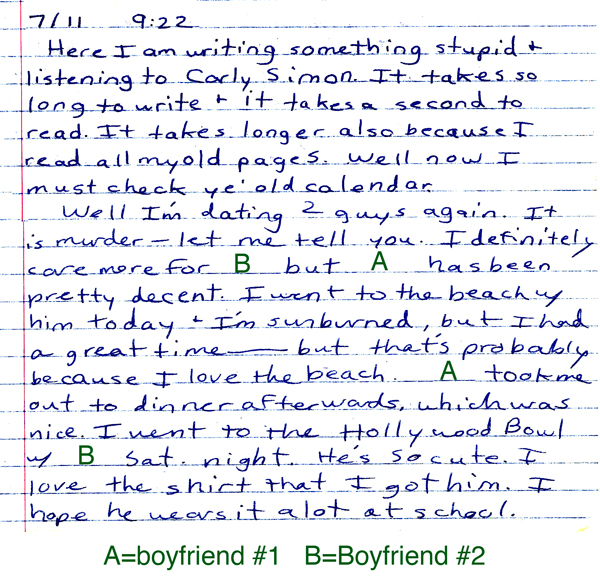 7/11 9:22
Here I am writing something stupid +
listening to Carly Simon. It takes so
long to write + it takes a second to
read. It takes longer also because I
read all my old pages. Well now I
must check ye' old calendar.
Well I'm dating 2 guys again. It
is murder — let me tell you. I definitely
care more for B but A has been
pretty decent. I went to the beach w/
him today + I'm sunburned, but I had
a great time — but that's probably
because I love the beach. A took me
out to dinner afterwards, which was
nice. I went to the Hollywood Bowl
w/ B Sat. night. He's so cute. I
love the shirt that I got him. I
hope he wears it a lot at school.
A=boyfriend #1 B=Boyfriend #2